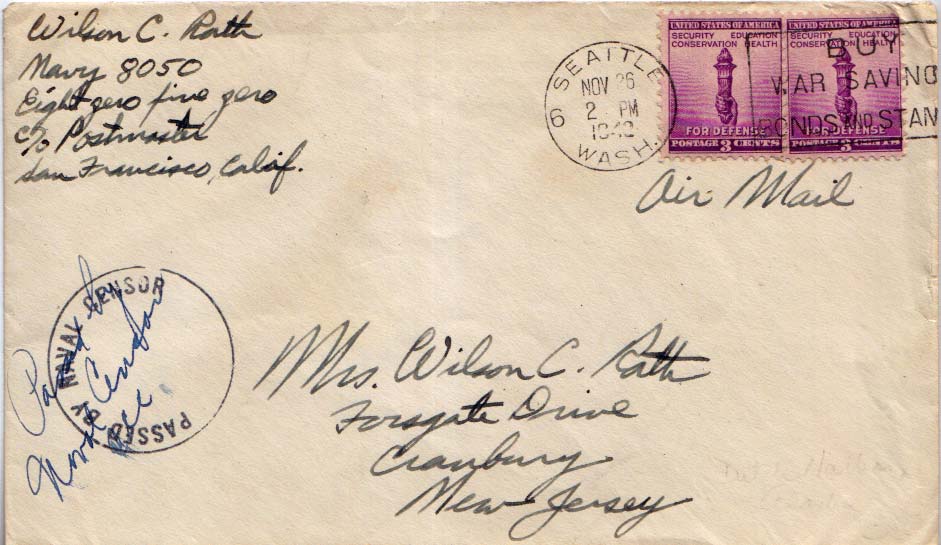 Wilson C. Rath
Navy 8050
Eight zero five zero
c/o Postmaster
San Francisco, Calif.
SEATTLE
NOV 26
2 PM
1942
WASH.
6
UNITED STATES OF AMERICA
SECURITY EDUCATION
CONSERVATION HEALTH
FOR DEFENSE
POSTAGE 3 CENTS
UNITED STATES OF AMERICA
SECURITY EDUCATION
CONSERVATION HEALTH
FOR DEFENSE
POSTAGE 3 CENTS
BUY
WAR SAVING
BONDS AND STAM
Air Mail
PASSED BY NAVAL CENSOR
Passed by
Naval Censor
Mrs. Wilson C. Rath
Forsgate Drive
Cranbury
New Jersey